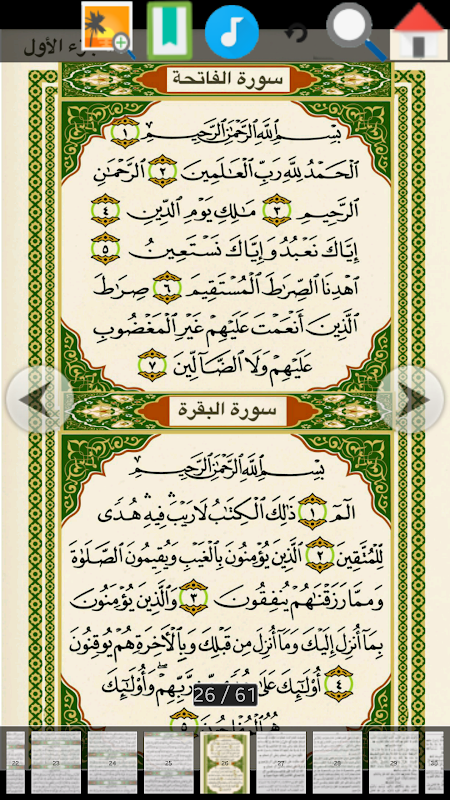 جزء الأول
سورة الفاتحة
بِسْمِ اللَّهِ الرَّحْمَٰنِ الرَّحِيمِ ١
الْحَمْدُ لِلَّهِ رَبِّ الْعَالَمِينَ ٢ الرَّحْمَٰنِ
الرَّحِيمِ ٣ مَالِكِ يَوْمِ الدِّينِ ٤
إِيَّاكَ نَعْبُدُ وَإِيَّاكَ نَسْتَعِينُ ٥
اهْدِنَا الصِّرَاطَ الْمُسْتَقِيمَ ٦ صِرَاطَ
الَّذِينَ أَنْعَمْتَ عَلَيْهِمْ غَيْرِ الْمَغْضُوبِ
عَلَيْهِمْ وَلَا الضَّالِّينَ ٧
سورة البقرة
بِسْمِ اللَّهِ الرَّحْمَٰنِ الرَّحِيمِ
الٓمٓ ١ ذَٰلِكَ الْكِتَابُ لَا رَيْبَ فِيهِ هُدًى
لِّلْمُتَّقِينَ ٢ الَّذِينَ يُؤْمِنُونَ بِالْغَيْبِ وَيُقِيمُونَ الصَّلَوٰةَ
وَمِمَّا رَزَقْنَاهُمْ يُنفِقُونَ ٣ وَالَّذِينَ يُؤْمِنُونَ
بِمَا أُنزِلَ إِلَيْكَ وَمَا أُنزِلَ مِن قَبْلِكَ وَبِالْآخِرَةِ هُمْ يُوقِنُونَ
٤ أُولَٰئِكَ عَلَىٰ رَّبِّهِمْ وَأُولَٰئِكَ
26 / 61
هُمُ ٥
22 23 24 25 26 27 28 29 30